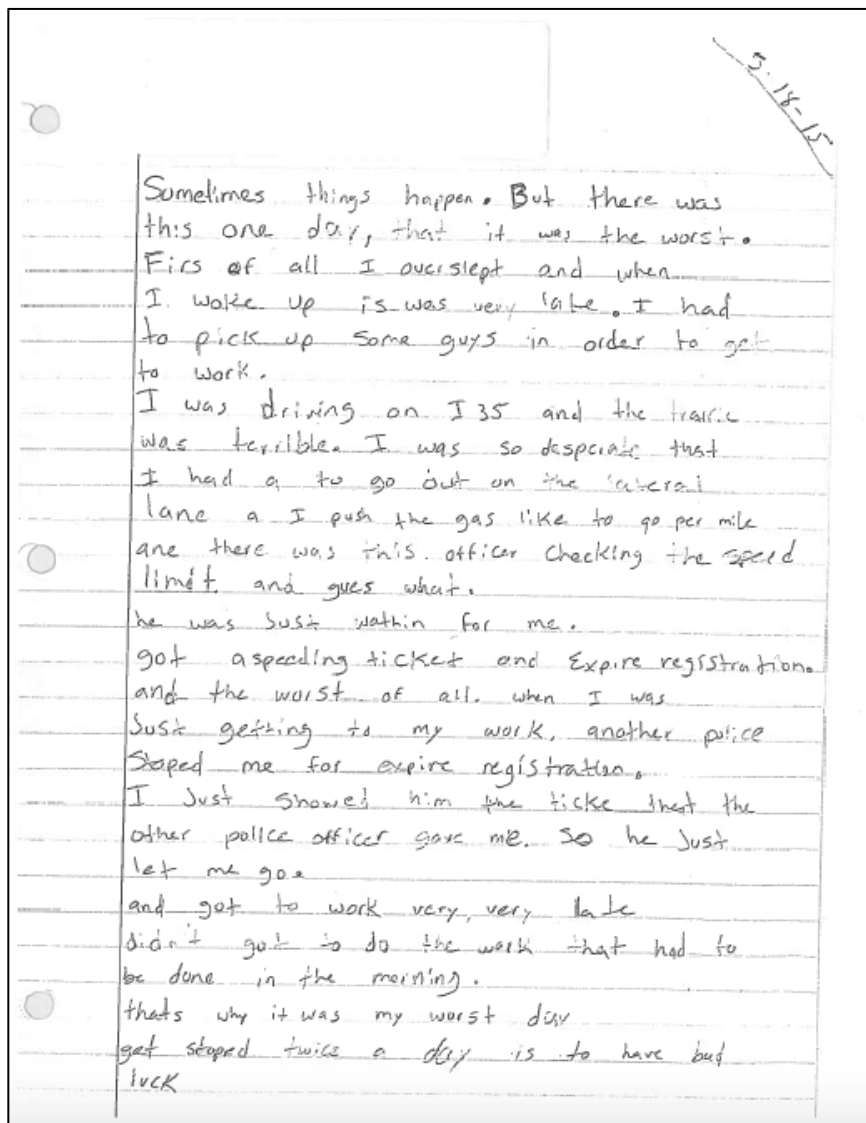 5-18-15
Sometimes things happen. But there was
this one day, that it was the worst.
Firs of all I overslept and when
I woke up is was very late. I had
to pick up some guys in order to get
to work.
I was driving on I35 and the traffic
was terrible. I was so desperate that
I had a to go out on the lateral
lane a I push the gas like to 90 per mile
ane there was this officer checking the speed
limit and gues what.
he was Just wathin for me.
got a speeding ticket and Expire registration.
and the worst of all. when I was
Just getting to my work, another police
Stoped me for expire registration.
I Just showed him the ticke that the
other police officer gave me. So he Just
let me go.
and got to work very, very late
didn't got to do the work that had to
be done in the morning.
thats why it was my worst day
get stoped twice a day is to have bad
luck